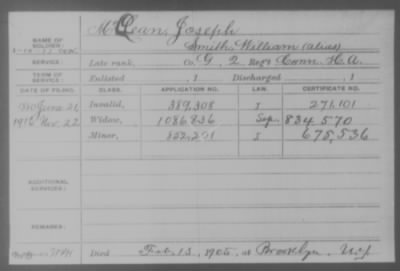 McLean, Joseph
NAME OF SOLDIER:
Smith, William (alias)
SERVICE: Late rank, Co. G, 2 Reg't Conn. H.A.
TERM OF SERVICE: Enlisted , 1 Discharged , 1
DATE OF FILING. CLASS. APPLICATION NO. LAW. CERTIFICATE NO.
Invalid, 389,308 271,101
1916 Nov. 22 Widow, 1086836 Sep. 834570
Minor, 675,536
ADDITIONAL SERVICES:
REMARKS:
Died Feb. 13, 1905, at Brooklyn, N.Y.